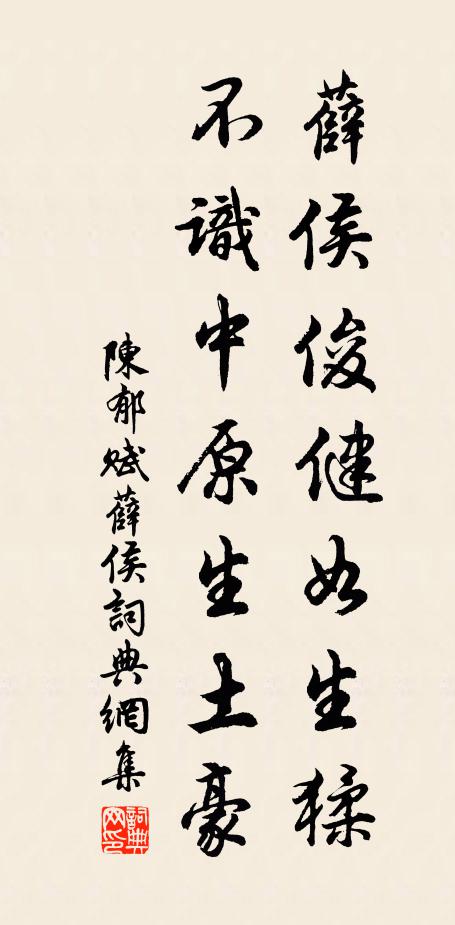 薛侯俊健如生猱
不識中原生土豪
陳郁賦薛侯詞典網集
詞典网印